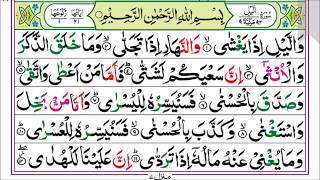 بِسْمِ اللّٰهِ الرَّحْمٰنِ الرَّحِيْمِ
وَالَّيْلِ اِذَا يَغْشٰى ۙ وَالنَّهَارِ اِذَا تَجَلّٰى ۙ وَمَا خَلَقَ الذَّكَرَ
وَالْاُنْثٰۤى ۙ اِنَّ سَعْيَكُمْ لَشَتّٰى ؕ فَاَمَّا مَنْ اَعْطٰى وَاتَّقٰى ۙ
وَصَدَّقَ بِالْحُسْنٰى ۙ فَسَنُيَسِّرُهٗ لِلْيُسْرٰى ؕ وَاَمَّا مَنْۢ بَخِلَ
وَاسْتَغْنٰى ۙ وَكَذَّبَ بِالْحُسْنٰى ۙ فَسَنُيَسِّرُهٗ لِلْعُسْرٰى ؕ
وَمَا يُغْنِيْ عَنْهُ مَالُهٗۤ اِذَا تَرَدّٰى ؕ اِنَّ عَلَيْنَا لَلْهُدٰى ۖ